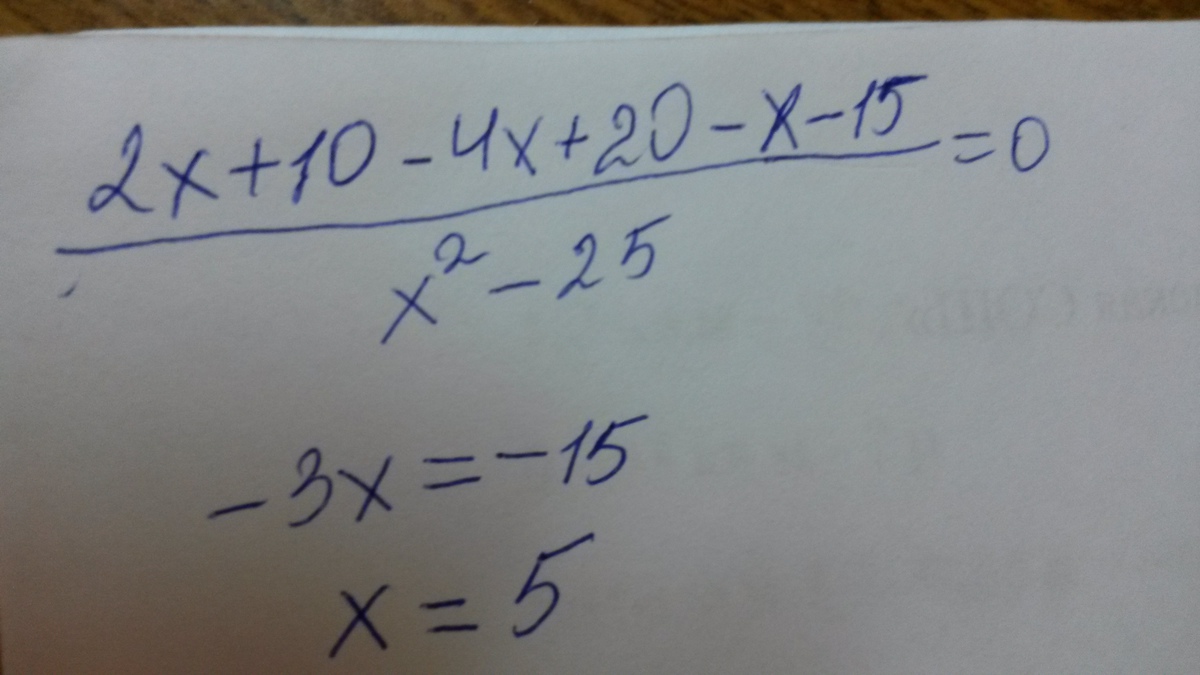 2x+10-4x+20-x-15 =0
x²-25
-3x=-15
x=5